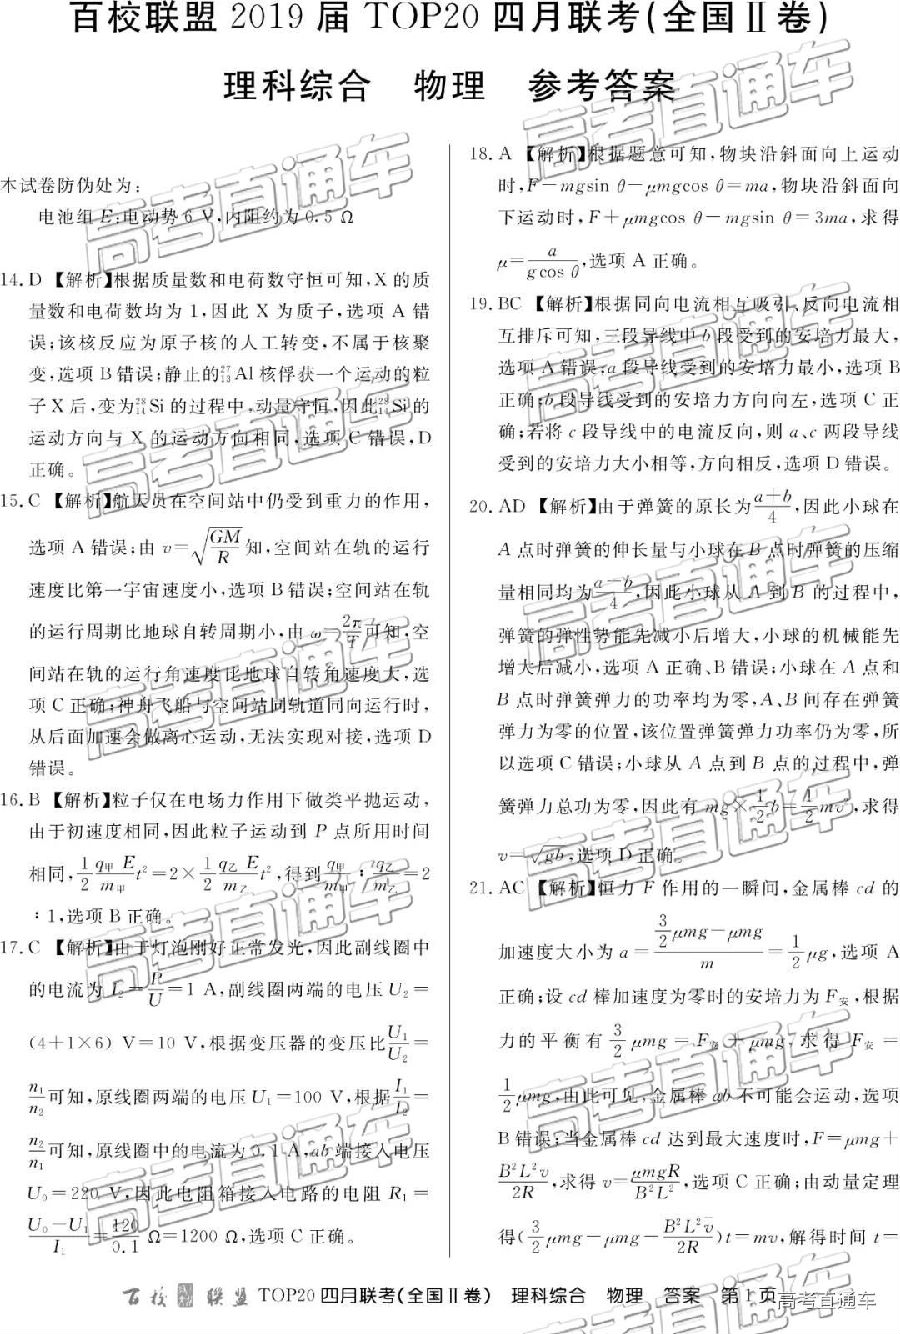 百校联盟 2019 届 TOP20 四月联考(全国Ⅱ卷)
理科综合 物理 参考答案
本试卷防伪处为:
电池组 E:电动势 6 V,内阻约为 0.5 Ω
14. D 【解析】根据质量数和电荷数守恒可知,X 的质
量数和电荷数均为 1,因此 X 为质子,选项 A 错
误;该核反应为原子核的人工转变,不属于核聚
变,选项 B 错误;静止的²⁷₁₃Al 核俘获一个运动的粒
子 X 后,变为²⁸₁₄Si 的过程中,动量守恒,因此²⁸₁₄Si的
运动方向与 X 的运动方向相同,选项 C 错误,D
正确。
15. C 【解析】航天员在空间站中仍受到重力的作用,
选项 A 错误;由 v=√(GM/R) 知,空间站在轨的运行
速度比第一宇宙速度小,选项 B 错误;空间站在轨
的运行周期比地球自转周期小,由 ω=2π/T 可知,空
间站在轨的运行角速度比地球自转角速度大,选
项 C 正确;神舟飞船与空间站同轨道同向运行时,
从后面加速会做离心运动,无法实现对接,选项 D
错误。
16. B 【解析】粒子仅在电场力作用下做类平抛运动,
由于初速度相同,因此粒子运动到 P 点所用时间
相同,1/2 q甲E/m甲 t²=2×1/2 q乙E/m乙 t²,得到 q甲/m甲 : q乙/m乙=2
:1,选项 B 正确。
17. C 【解析】由于灯泡刚好正常发光,因此副线圈中
的电流为 I₂=P/U=1 A,副线圈两端的电压 U₂=
(4+1×6) V=10 V,根据变压器的变压比 U₁/U₂=
n₁/n₂可知,原线圈两端的电压 U₁=100 V,根据 I₁/I₂=
n₂/n₁可知,原线圈中的电流为 0.1 A,ab 端接入电压
U₀=220 V,因此电阻箱接入电路的电阻 R₁=
(U₀-U₁)/I₁=120/0.1 Ω=1200 Ω,选项 C 正确。
18. A 【解析】根据题意可知,物块沿斜面向上运动
时,F-mgsin θ-μmgcos θ=ma,物块沿斜面向
下运动时,F+μmgcos θ-mgsin θ=3ma,求得
μ=a/(gcos θ),选项 A 正确。
19. BC 【解析】根据同向电流相互吸引、反向电流相
互排斥可知,三段导线中 b 段受到的安培力最大,
选项 A 错误;a 段导线受到的安培力最小,选项 B
正确;b 段导线受到的安培力方向向左,选项 C 正
确;若将 c 段导线中的电流反向,则 a、c 两段导线
受到的安培力大小相等,方向相反,选项 D 错误。
20. AD 【解析】由于弹簧的原长为(a+b)/4,因此小球在
A 点时弹簧的伸长量与小球在 B 点时弹簧的压缩
量相同均为(a-b)/4,因此小球从 A 到 B 的过程中,
弹簧的弹性势能先减小后增大,小球的机械能先
增大后减小,选项 A 正确、B 错误;小球在 A 点和
B 点时弹簧弹力的功率均为零,A、B 间存在弹簧
弹力为零的位置,该位置弹簧弹力功率仍为零,所
以选项 C 错误;小球从 A 点到 B 点的过程中,弹
簧弹力总功为零,因此有 mg×1/2 b=1/2 mv²,求得
v=√(gb),选项 D 正确。
21. AC 【解析】恒力 F 作用的一瞬间,金属棒 cd 的
加速度大小为 a=(3/2 μmg-μmg)/m=1/2 μg,选项 A
正确;设 cd 棒加速度为零时的安培力为 F安,根据
力的平衡有 3/2 μmg=F安+μmg,求得 F安=
1/2 μmg,由此可见,金属棒 ab 不可能会运动,选项
B 错误;当金属棒 cd 达到最大速度时,F=μmg+
B²L²v/2R,求得 v=μmgR/B²L²,选项 C 正确;由动量定理
得(3/2 μmg-μmg-B²L²v̄/2R)t=mv,解得时间 t=
百校联盟 TOP20 四月联考(全国Ⅱ卷) 理科综合 物理 答案 第 1 页
高考直通车